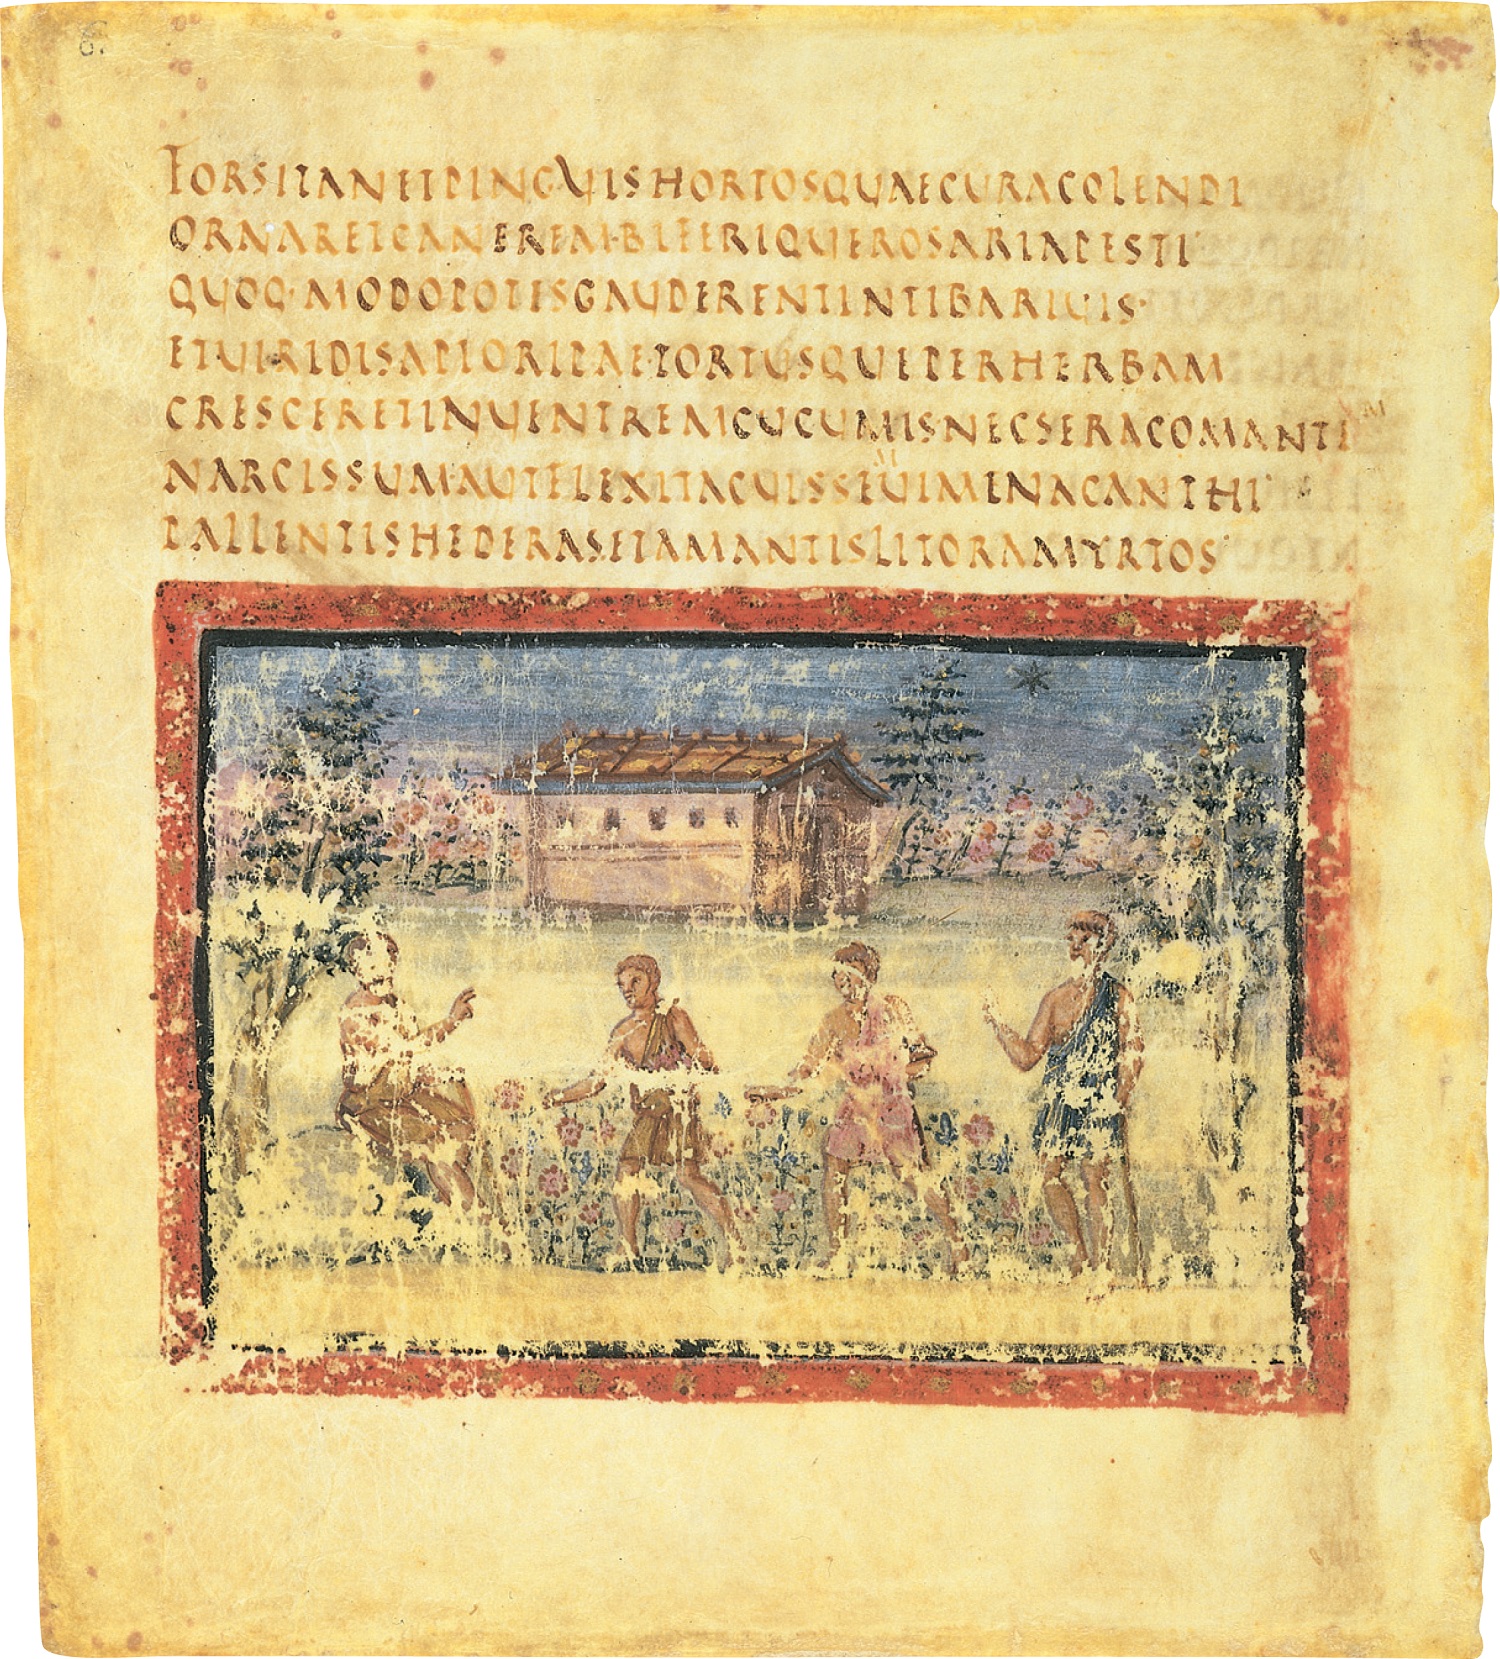 6.
FORSITANETPINGUISHORTOSQUAECURACOLENDI
ORNARETCANEREM·BIFERIQUEROSARIAPESTI
QUOQ·MODOPOTISGAUDERENTINTIBARIUIS·
ETUIRIDISAPIORIPAE·TORTUSQUEPERHERBAM
CRESCERETINUENTREMCUCUMISNECSERACOMANTI
NARCISSUM·AUTFLEXITACUISSEUIMENACANTHI
PALLENTISHEDERASETAMANTISLITORAMYRTOS